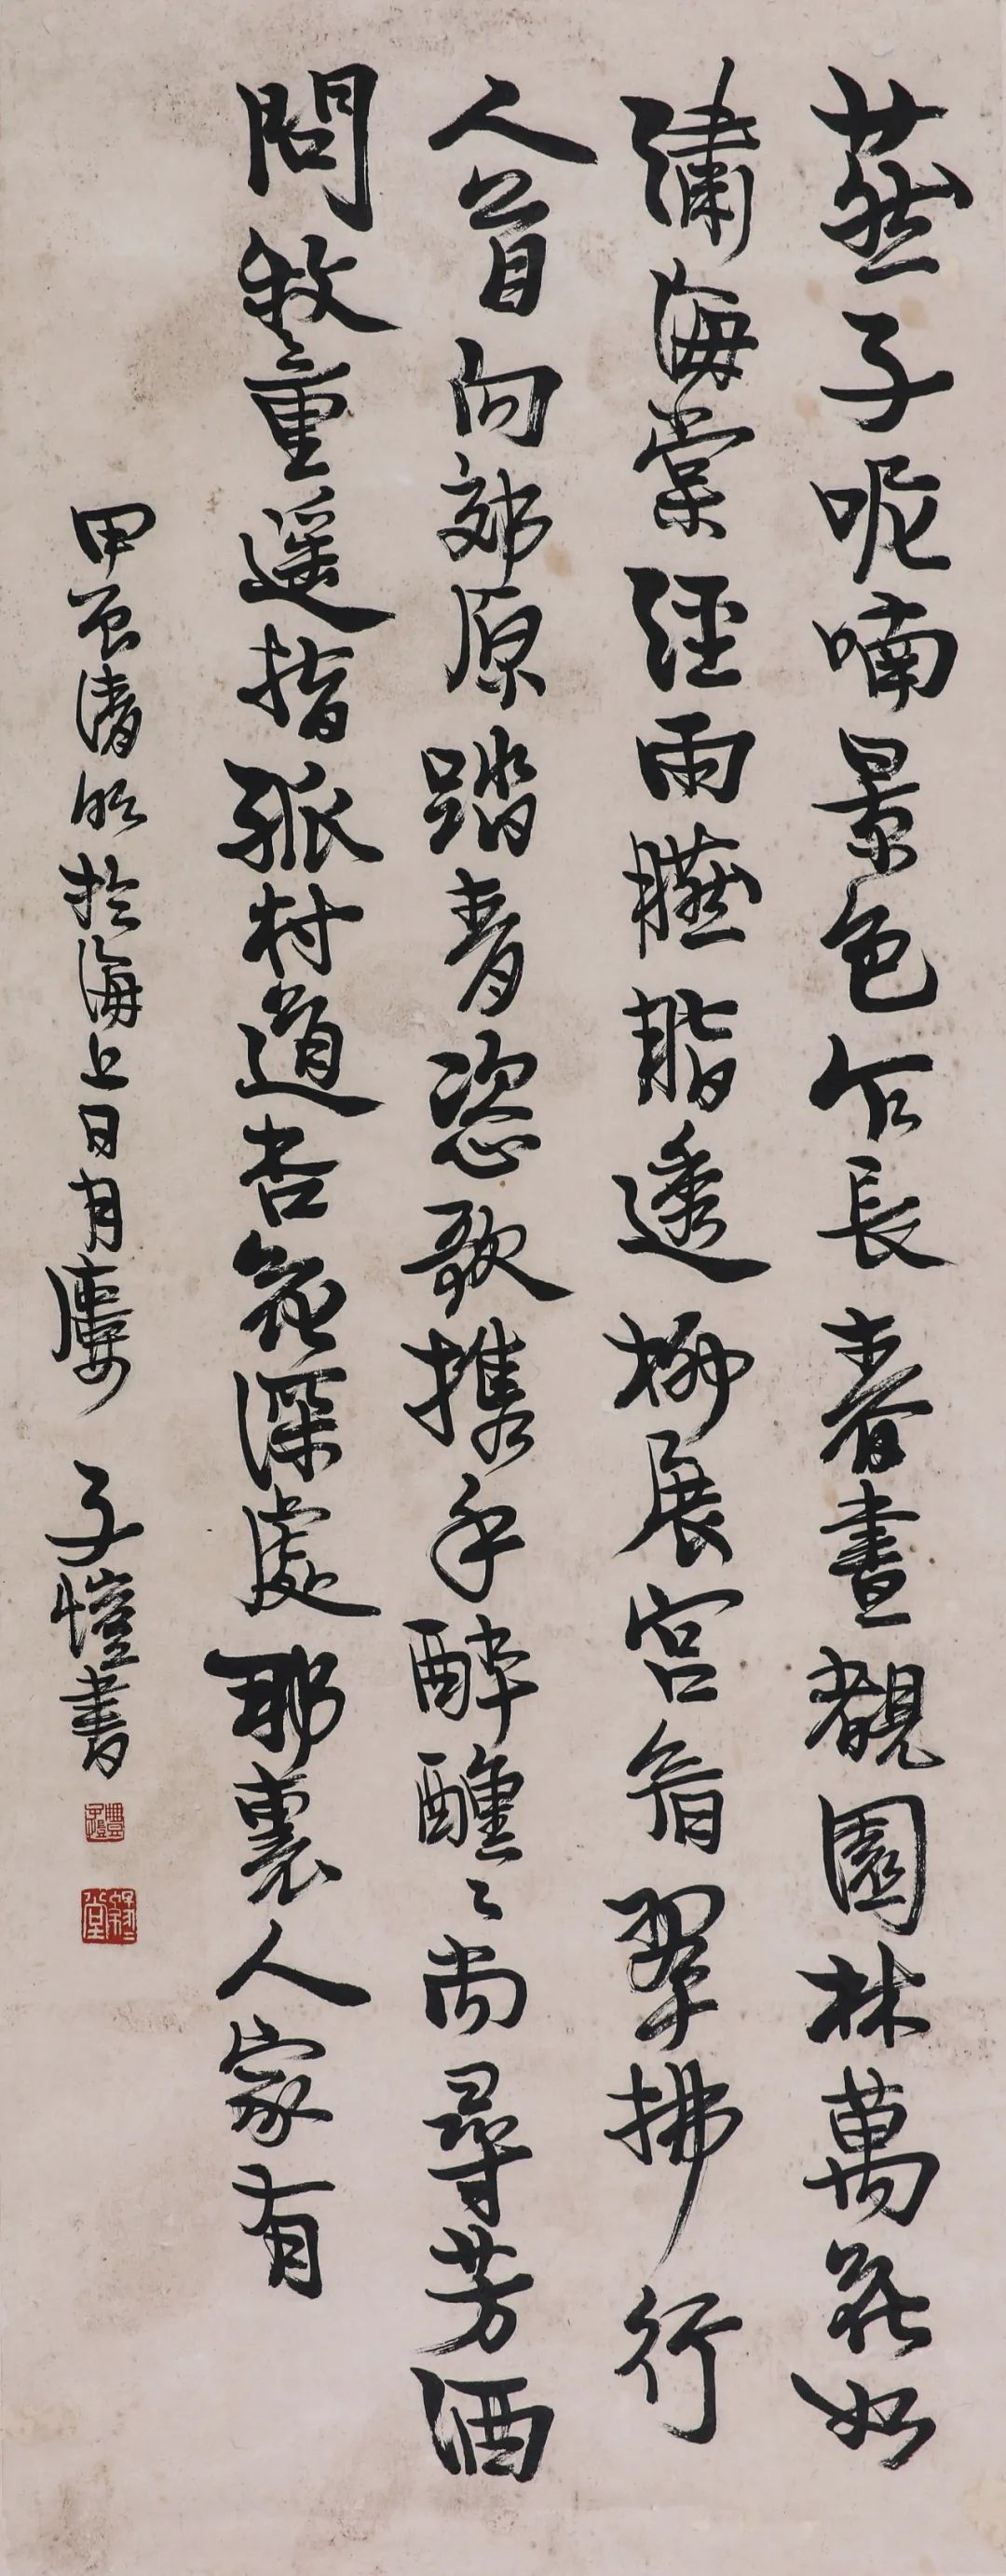 燕子呢喃景色乍長春晝覩園林萬花如
繡海棠經雨臙脂透柳展宮眉翠拂行
人首向郊原踏青恣歌攜手醉醺々尚尋芳酒
問牧童遥指孤村道杏花深處那裏人家有
甲辰清明於海上日月樓 子愷書
豐子愷
緣緣堂